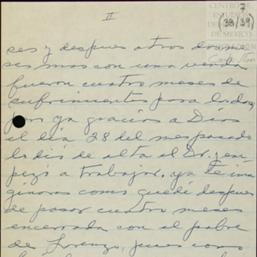 II
7
(38/39)
CENTRO
DE MEXICO
ses y despues otros dos me
ses mas con una venda
fueron cuatro meses de
sufrimientos para los dos,
por ya gracias a Dios
el dia 28 del mes pasado
lo dió de alta el Dr. y em
pezo a trabajar, ya te ima
ginaras como quedé despues
de pasar cuatro meses
encerrada con el pobre
de Lorenzo, pues como